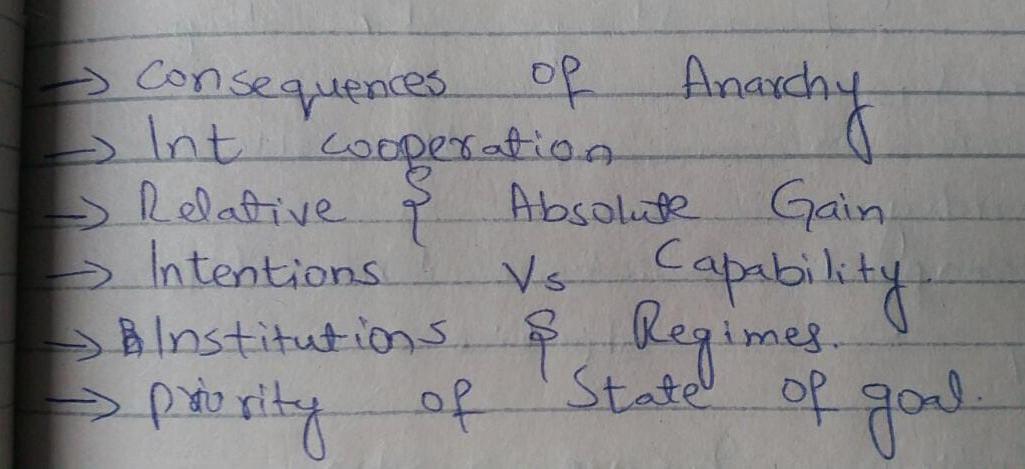 → Consequences of Anarchy
→ Int cooperation
→ Relative & Absolute Gain
→ Intentions Vs Capability.
→ Institutions & Regimes.
→ priority of State of goal.